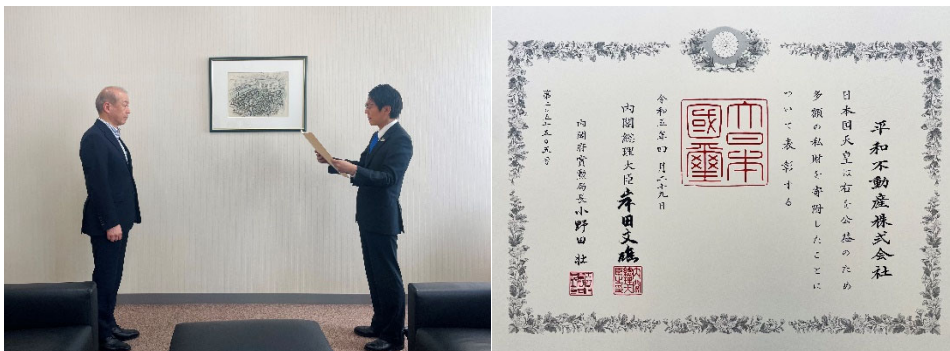 平和不動産株式会社
日本国天皇は右を公益のため
多額の私財を寄附したことに
ついて表彰する
大日本
國璽
令和五年四月二十九日
内閣総理大臣岸田文雄
内閣府賞勲局長小野田壮